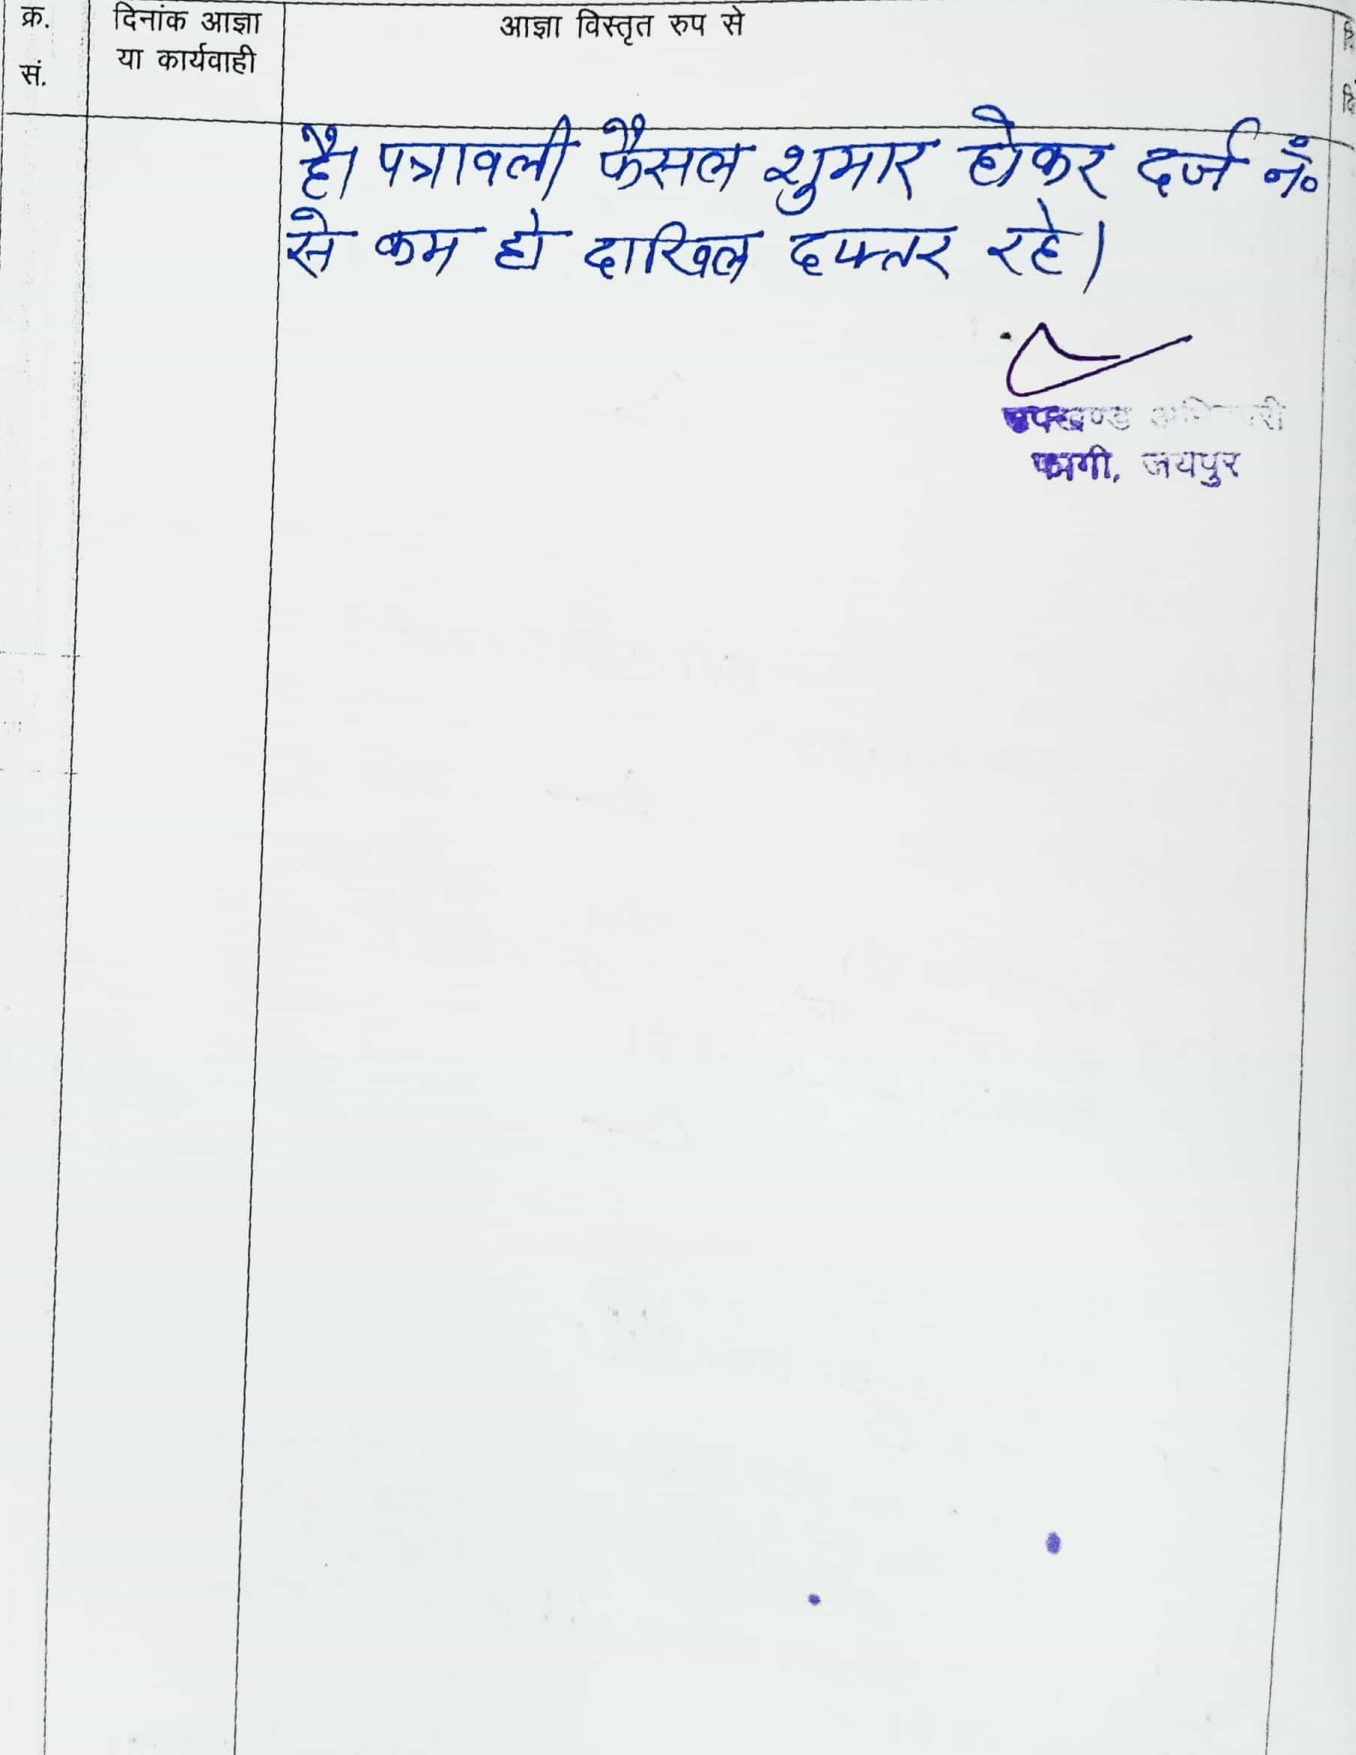 क्र.
सं.
दिनांक आज्ञा
या कार्यवाही
आज्ञा विस्तृत रुप से
है। पत्रावली फैसल शुमार होकर दर्ज नं०
से कम हो दाखिल दफ्तर रहे।
उपखण्ड अधिकारी
फागी, जयपुर